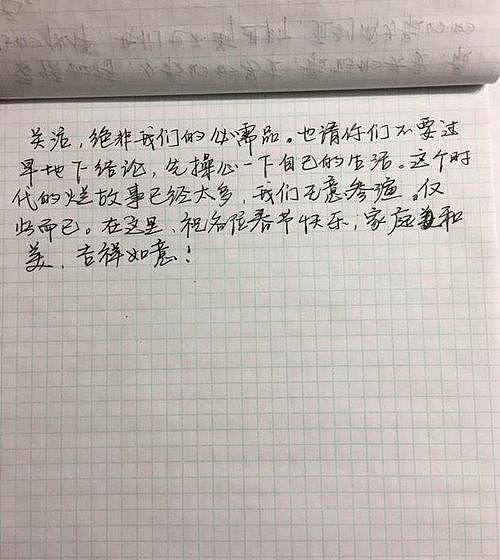 关注，绝非我们的必需品。也请你们不要过
早地下结论，先操心一下自己的生活。这个时
代的烂故事已经太多，我们无意参演。仅
此而已。在这里，祝各位春节快乐；家庭和
美，吉祥如意！